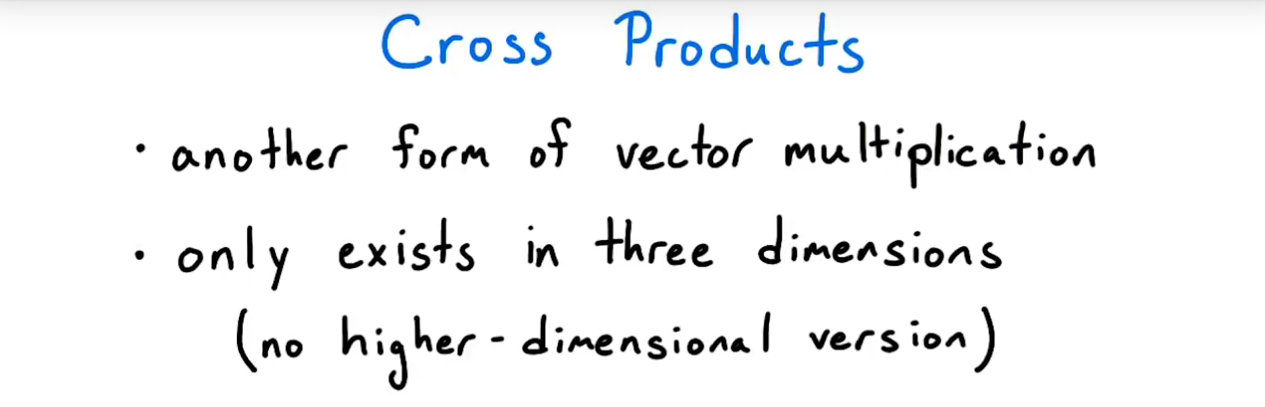 Cross Products
· another form of vector multiplication
· only exists in three dimensions
(no higher-dimensional version)